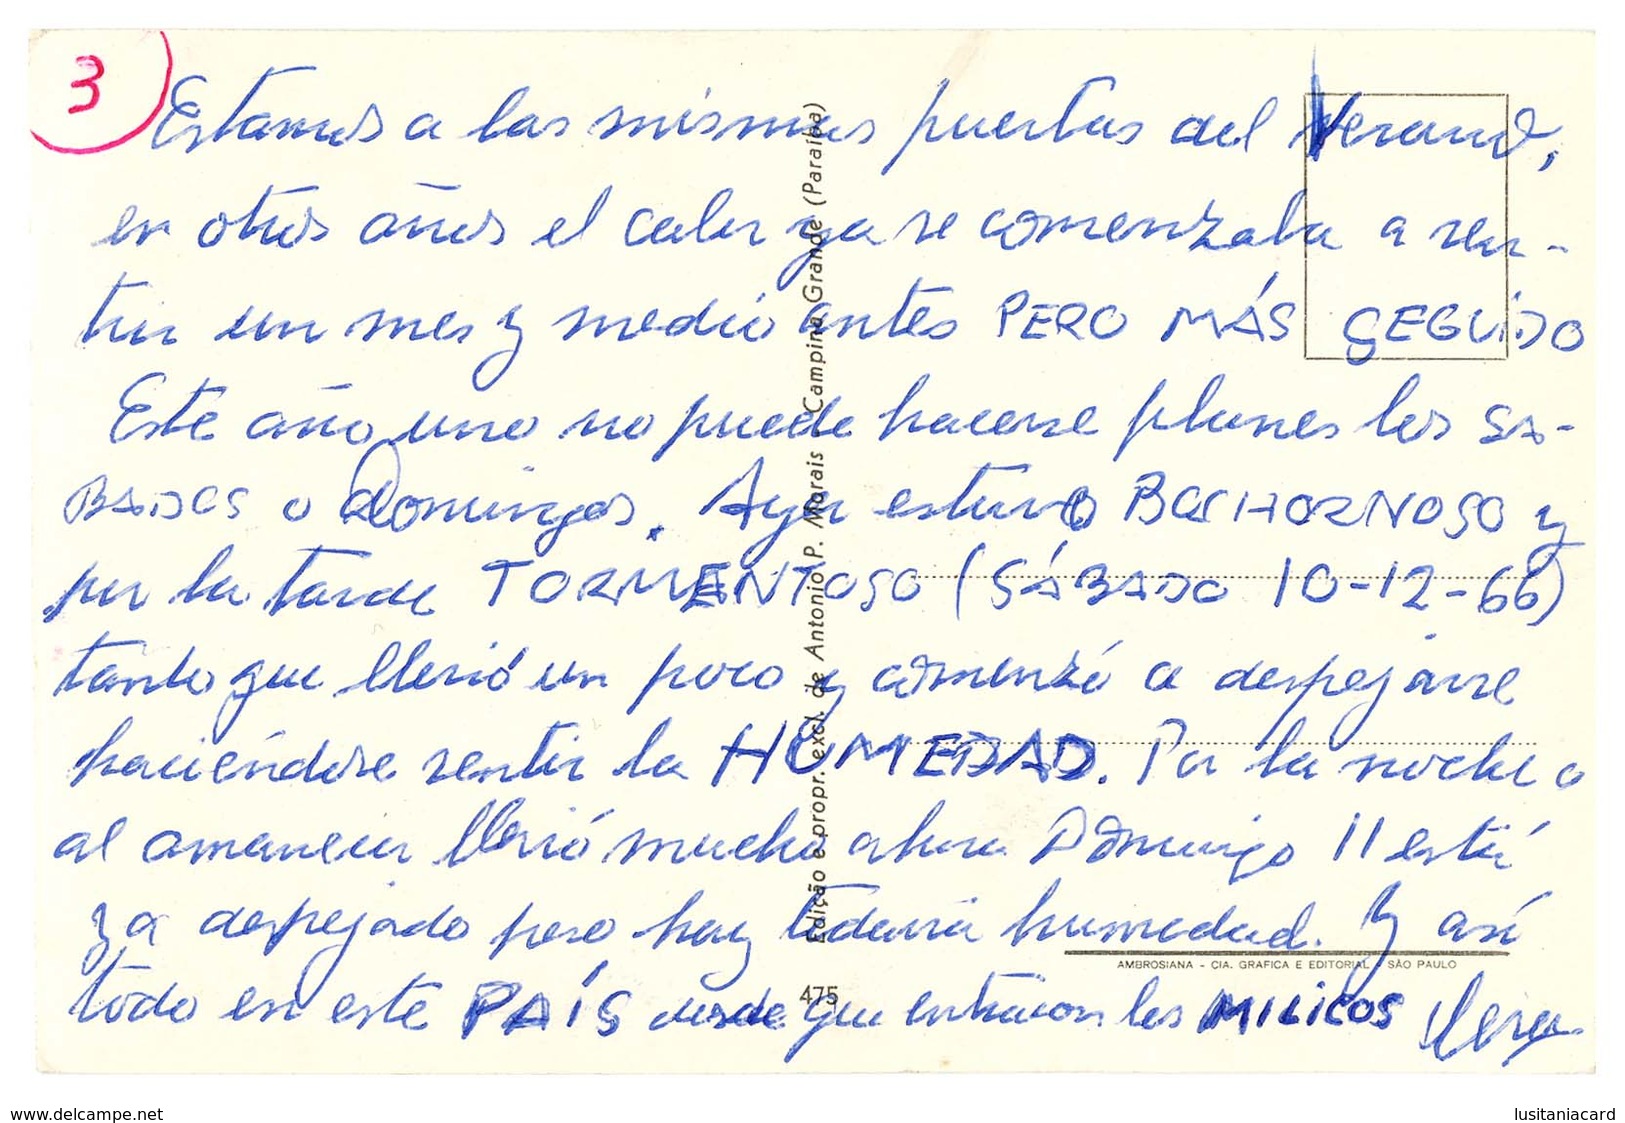 3
Estamos a las mismas puertas del Verano,
en otros años el calor ya se comenzaba a sen-
tir un mes y medio antes PERO MÁS SEGUIDO
Este año uno no puede hacerse planes los SÁ-
BADOS o Domingos. Ayer estuvo BOCHORNOSO y
por la tarde TORMENTOSO (SÁBADO 10-12-66)
tanto que llovió un poco y comenzó a despejarse
haciéndose sentir la HUMEDAD. Por la noche o
al amanecer llovió mucho ahora Domingo 11 está
ya despejado pero hay todavía humedad. Y así
todo en este PAÍS desde que entraron los MILICOS
Edição e propr. excl. de Antonio P. Morais Campina Grande (Paraiba)
AMBROSIANA - CIA. GRAFICA E EDITORIAL - SÃO PAULO
475
www.delcampe.net
lusitaniacard